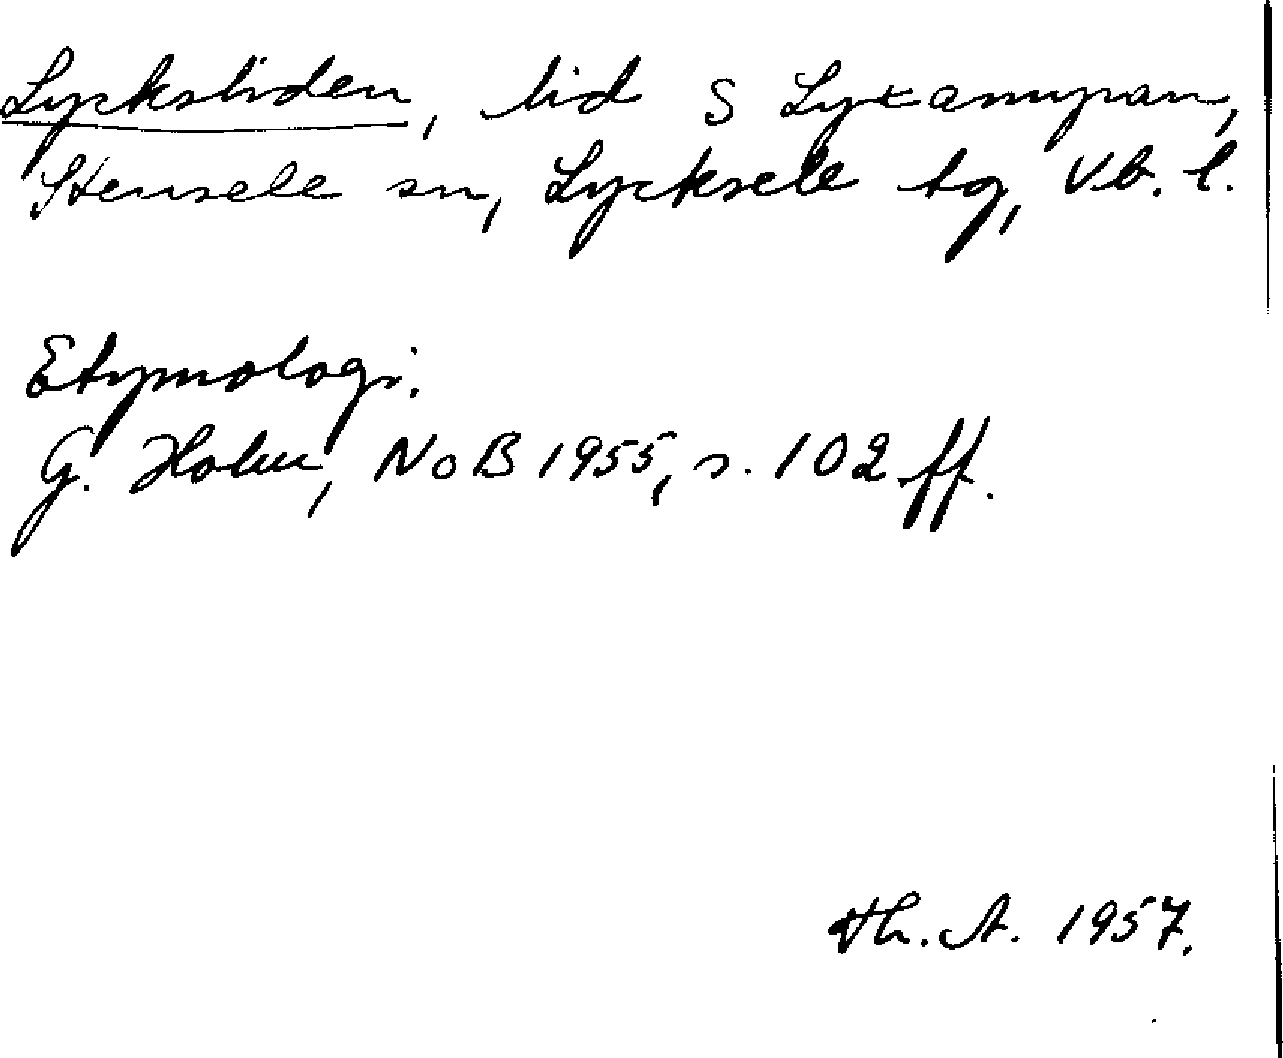 Lycksliden, lid S Lyxamyran,
Stensele sn, Lycksele tg, Vb. l.
Etymologi.
G. Holm, NoB 1955, s. 102 ff.
Th. A. 1957.